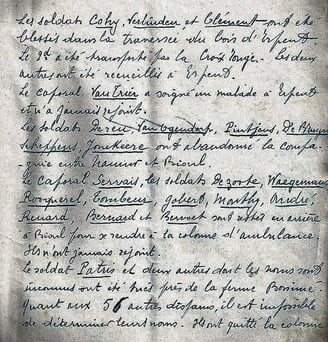 Les soldats Cohy, Verlinden et Clément ont été
blessés dans la traversée du bois d'Erpent
Le 2d a été transporté par la Croix Rouge. Les deux
autres ont été recueillis à Erpent.
Le caporal Van Trier a soigné un malade à Erpent
et n'a jamais rejoint.
Les soldats Dereu, Van Ogendorp, Pintjens, De
Scheppens, Jonkeere ont abandonné la compa-
gnie entre Tramur et Bioul.
Le Caporal Servais, les soldats Dezoote, Waegemans
Rocquerel, Tombeur, Gobert, Monthy,
Renard, Bernard et Bernoet sont restés en arrière
à Bioul pour se rendre à la colonne d'ambulance.
Ils n'ont jamais rejoint.
Le soldat Patris et deux autres dont les noms sont
inconnus ont été tués près de la ferme
Quant aux 56 autres disparus, il est impossible
de déterminer leurs noms. Ils ont quitté la colonne